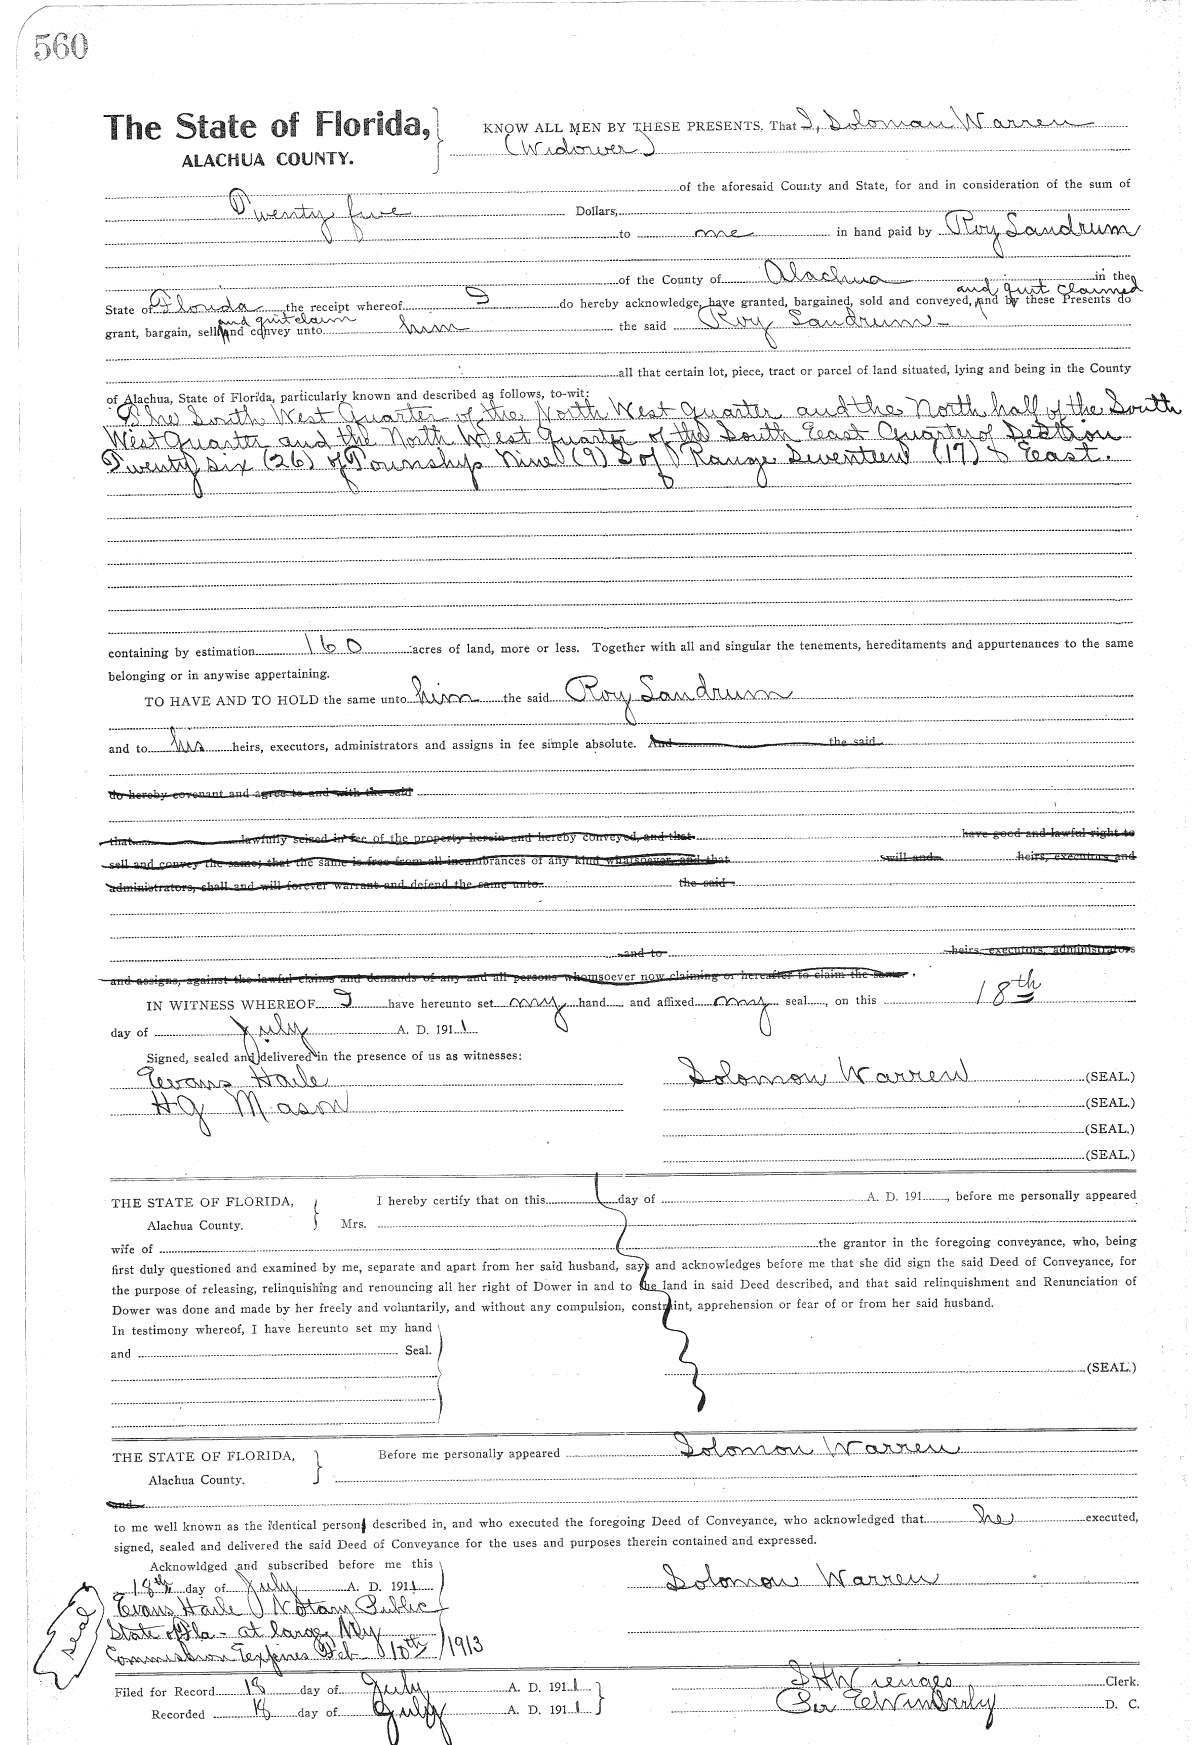 560
The State of Florida, KNOW ALL MEN BY THESE PRESENTS, That I, Soloman Warren
ALACHUA COUNTY. (Widower)
of the aforesaid County and State, for and in consideration of the sum of
Twenty five Dollars,
to me in hand paid by Roy Landrum
of the County of Alachua in the
and quit claimed
State of Florida the receipt whereof I do hereby acknowledge, have granted, bargained, sold and conveyed, and by these Presents do
and quit claim
grant, bargain, sell and convey unto him the said Roy Landrum
all that certain lot, piece, tract or parcel of land situated, lying and being in the County
of Alachua, State of Florida, particularly known and described as follows, to-wit:
The South West Quarter of the North West Quarter and the North half of the South
West Quarter and the North West Quarter of the South East Quarter of Section
Twenty six (26) of Township Nine (9) S of Range Seventeen (17) East.
containing by estimation 160 acres of land, more or less. Together with all and singular the tenements, hereditaments and appurtenances to the same
belonging or in anywise appertaining.
TO HAVE AND TO HOLD the same unto him the said Roy Landrum
and to his heirs, executors, administrators and assigns in fee simple absolute. And the said
do hereby covenant and agree to and with the said
that lawfully seized in fee of the property herein and hereby conveyed, and that have good and lawful right to
sell and convey the same; that the same is free from all incumbrances of any kind whatsoever, and that will and heirs, executors and
administrators, shall and will forever warrant and defend the same unto the said
and to heirs, executors, administrators
and assigns, against the lawful claims and demands of any and all persons whomsoever now claiming or hereafter to claim the same.
IN WITNESS WHEREOF I have hereunto set my hand and affixed my seal, on this 18th
day of July A. D. 1911
Signed, sealed and delivered in the presence of us as witnesses:
Evans Haile Solomon Warren (SEAL.)
HG Mason (SEAL.)
(SEAL.)
(SEAL.)
THE STATE OF FLORIDA, I hereby certify that on this day of A. D. 191, before me personally appeared
Alachua County. Mrs.
wife of the grantor in the foregoing conveyance, who, being
first duly questioned and examined by me, separate and apart from her said husband, says and acknowledges before me that she did sign the said Deed of Conveyance, for
the purpose of releasing, relinquishing and renouncing all her right of Dower in and to the land in said Deed described, and that said relinquishment and Renunciation of
Dower was done and made by her freely and voluntarily, and without any compulsion, constraint, apprehension or fear of or from her said husband.
In testimony whereof, I have hereunto set my hand
and Seal.
(SEAL.)
THE STATE OF FLORIDA, Before me personally appeared Solomon Warren
Alachua County.
and
to me well known as the identical person described in, and who executed the foregoing Deed of Conveyance, who acknowledged that he executed,
signed, sealed and delivered the said Deed of Conveyance for the uses and purposes therein contained and expressed.
Acknowldged and subscribed before me this
18th day of July A. D. 1911 Solomon Warren
Evans Haile Notary Public
seal
State of Fla - at large, My
Commission Expires Feb 10th 1913
Filed for Record 18 day of July A. D. 1911 S H Wienges Clerk.
Recorded 18 day of July A. D. 1911 Per E Wimberly D. C.